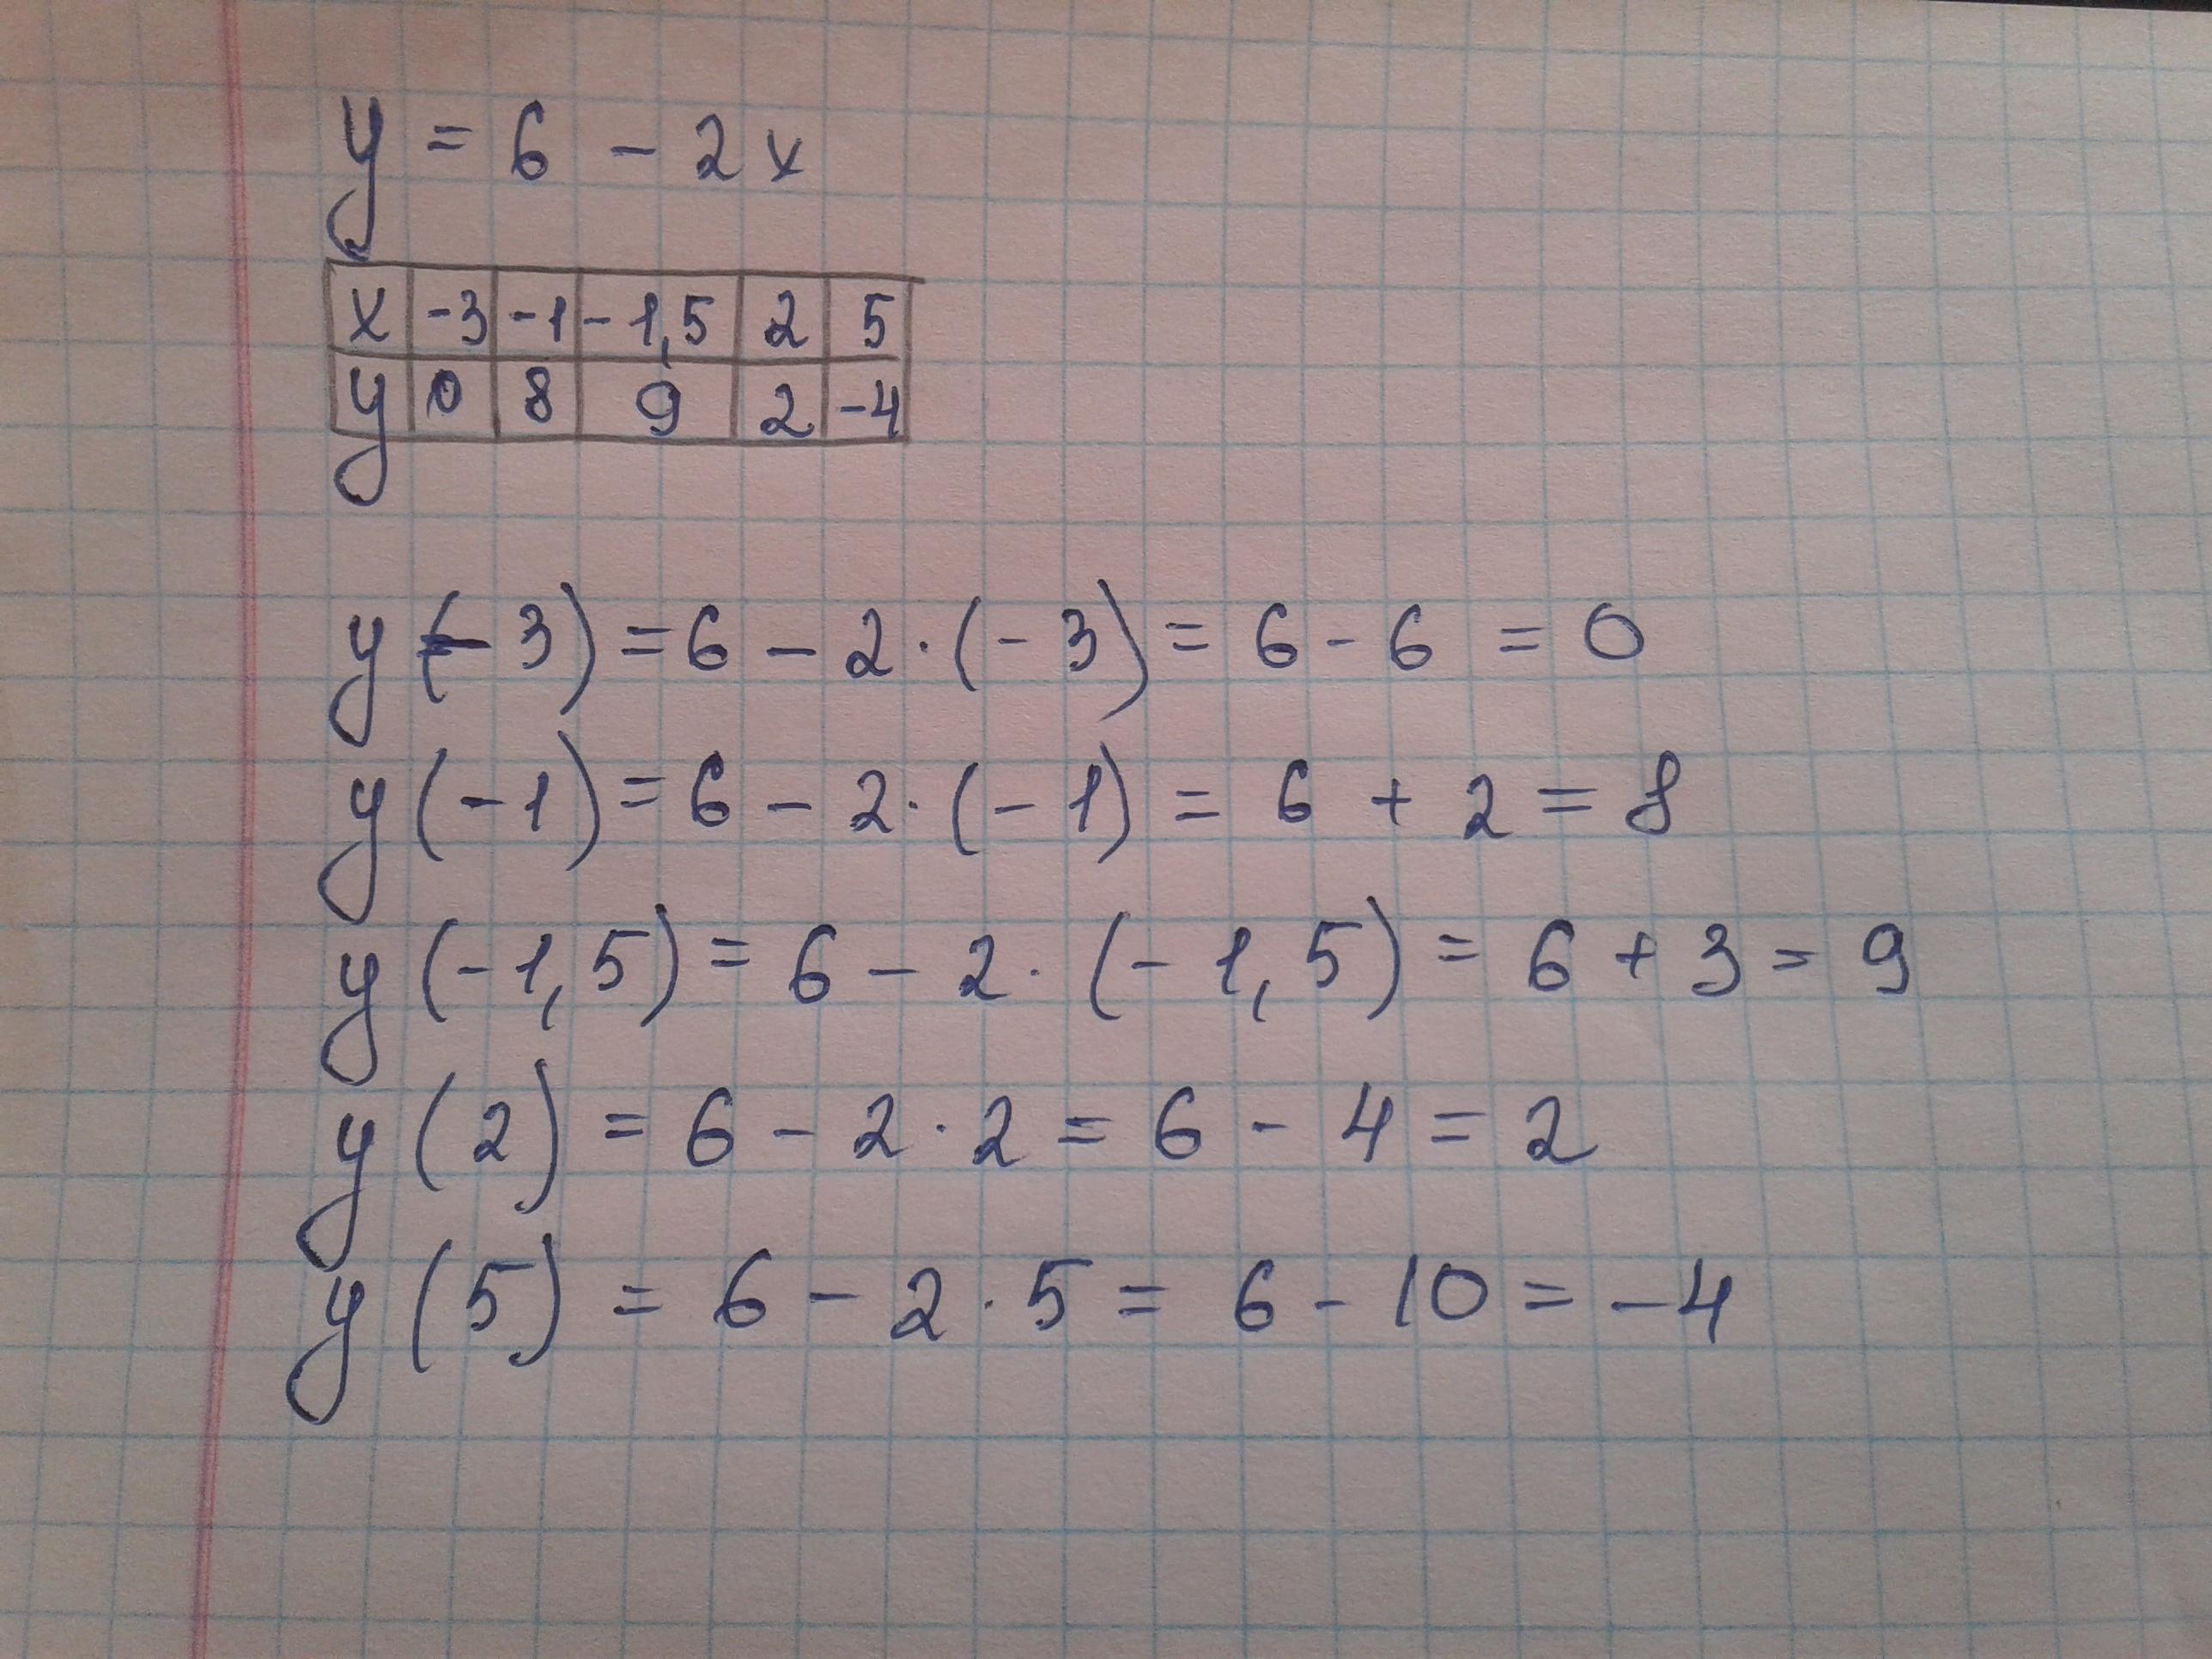 y = 6 - 2x
x -3 -1 -1,5 2 5
y 0 8 9 2 -4
y(-3) = 6 - 2·(-3) = 6 - 6 = 0
y(-1) = 6 - 2·(-1) = 6 + 2 = 8
y(-1,5) = 6 - 2·(-1,5) = 6 + 3 = 9
y(2) = 6 - 2·2 = 6 - 4 = 2
y(5) = 6 - 2·5 = 6 - 10 = -4